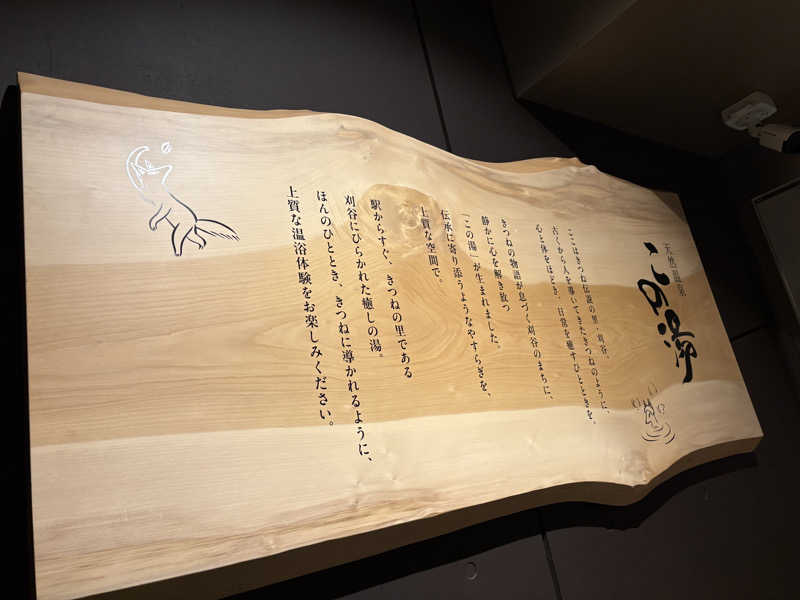 天然温泉
この湯
ここはきつね伝説の里、刈谷。
古くから人を導いてきたきつねのように、
心と体をほどき、日常を癒すひとときを。
きつねの物語が息づく刈谷のまちに、
静かに心を解き放つ
「この湯」が生まれました。
伝承に寄り添うようなやすらぎを、
上質な空間で。
駅からすぐ、きつねの里である
刈谷にひらかれた癒しの湯。
ほんのひととき、きつねに導かれるように、
上質な温浴体験をお楽しみください。